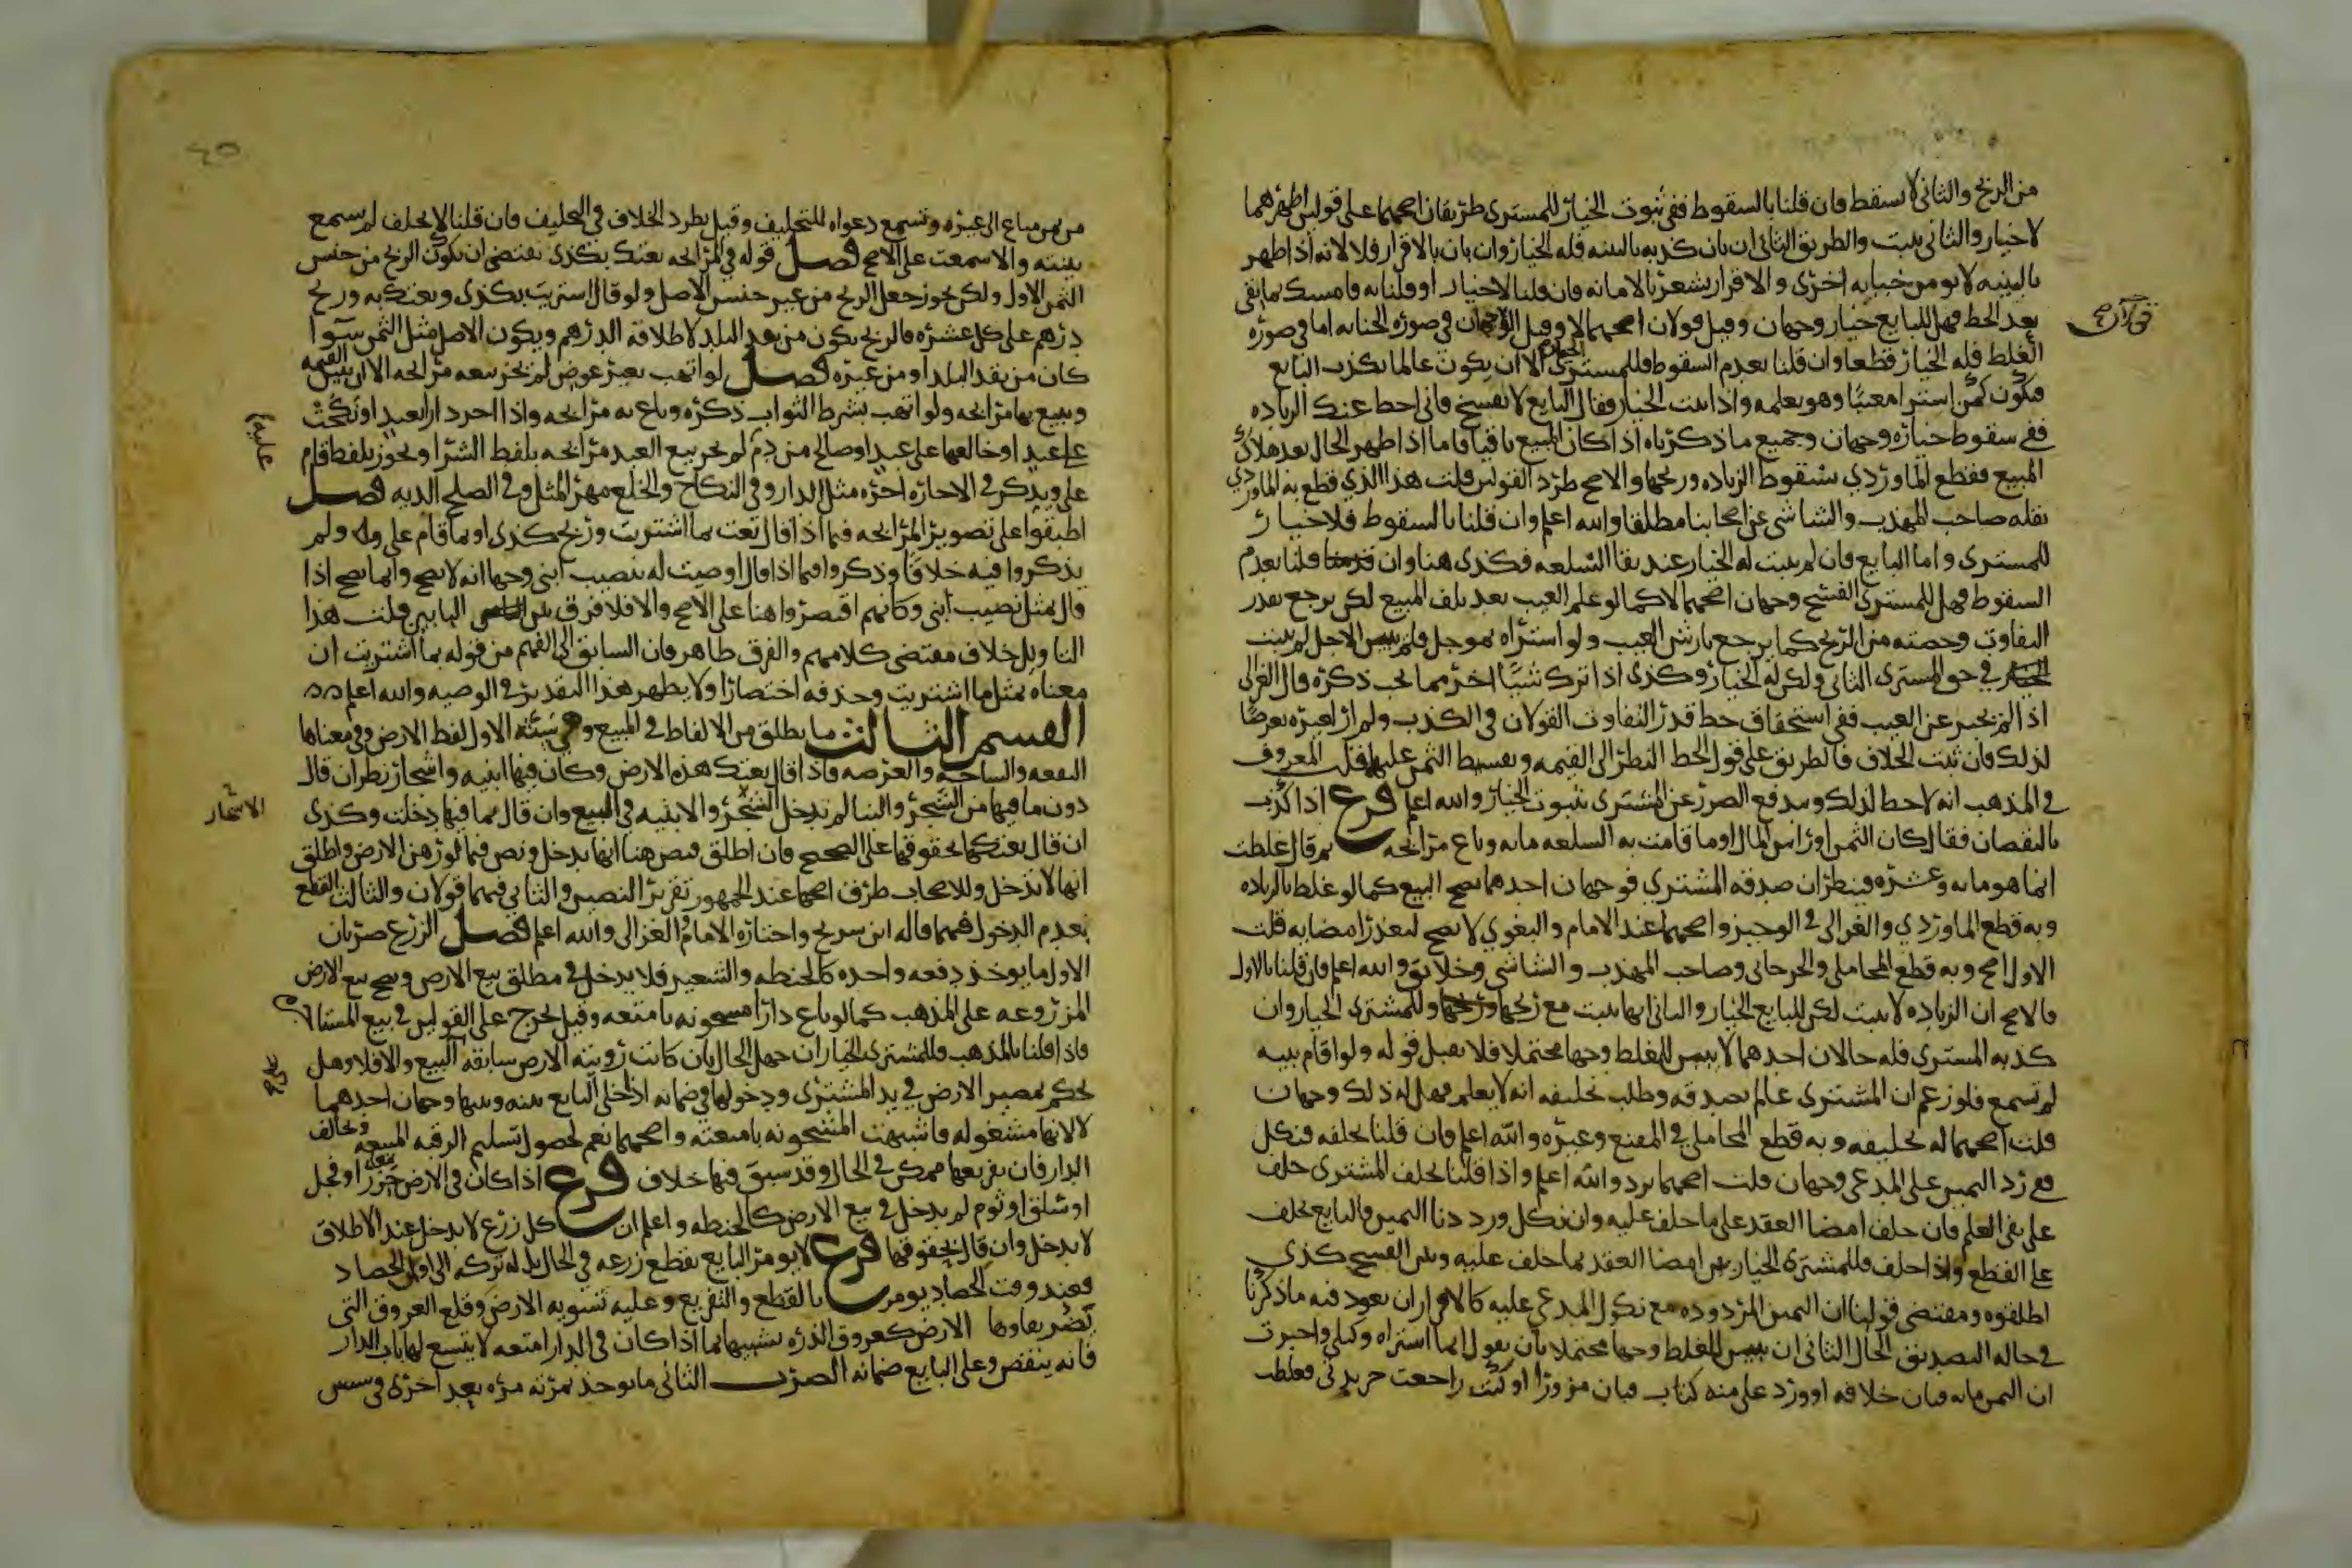 من الربح والثاني لا يسقط فان قلنا بالسقوط ففي ثبوت الخيار للمستري طريقان اصحهما على قولين اظهرهما
لا خيار والثاني يثبت والطريق الثاني ان بان كذبه بالبينه فله الخيار وان بان بالاقرار فلا لانه اذا ظهر
بالبينه لا يومن خيانه اخرى والاقرار يشعر بالامانه فان قلنا لا خيار او قلنا به فامسك بما بقي
بعد الحط فهل للبايع خيار وجهان وقيل قولان اصحهما لا وقيل الوجهان في صوره الخيانه اما في صوره
الغلط فله الخيار قطعا وان قلنا بعدم السقوط فللمستري الخيار الا ان يكون عالما بكذب البايع
فيكون كمن استرا معيبا وهو يعلمه واذا ثبت الخيار فقال البايع لا تفسخ فاني احط عنك الزياده
ففي سقوط خياره وجهان وجميع ما ذكرناه اذا كان المبيع باقيا فاما اذا ظهر الحال بعد هلاك
المبيع فقطع الماوردي بسقوط الزياده وربحها والاصح طرد القولين قلت هذا الذي قطع به الماوردي
نقله صاحب المهذب والشاشي عن اصحابنا مطلقا والله اعلم وان قلنا بالسقوط فلا خيار
للمستري واما البايع فان لم يثبت له الخيار عند بقا السلعه فكذى هنا وان قلنا بعدم
السقوط فهل للمستري الفسخ وجهان اصحهما لا كما لو علم العيب بعد تلف المبيع لكن يرجع بقدر
التفاوت وحصته من الربح كما يرجع بارش العيب ولو استراه بموجل فلم يبين الاجل لم يثبت
في حق المستري الثاني ولكن له الخيار وكذى اذا ترك شيئا اخر مما يجب ذكره قال الغزالي
اذا لم يخبر عن العيب ففي استحقاق حط قدر التفاوت القولان في الكذب ولم ار لغيره تعرضا
لذلك فان ثبت الخلاف فالطريق على قول الحط النظر الى القيمه وتقسيط الثمن عليها قلت المعروف
في المذهب انه لا حط لذلك ويندفع الضرر عن المشتري بثبوت الخيار والله اعلم فرع اذا كذب
بالنقصان فقال كان الثمن او راس المال او ما قامت به السلعه مايه وباع مرابحه ثم قال غلطت
انما هو مايه وعشره فينظر ان صدقه المشتري فوجهان احدهما يصح البيع كما لو غلط بالزياده
وبه قطع الماوردي والغزالي في الوجيز واصحهما عند الامام والبغوي لا يصح لتعذر امضايه قلت
الاول اصح وبه قطع المحاملي والجرجاني وصاحب المهذب والشاشي وخلايق والله اعلم فان قلنا بالاول
فالاصح ان الزياده لا تثبت لكن للبايع الخيار والثاني انها تثبت مع ربحها وللمشتري الخيار وان
كذبه المستري فله حالان احدهما لا يبين للغلط وجها محتملا فلا يقبل قوله ولو اقام بينه
لم تسمع فلو زعم ان المشتري عالم بصدقه وطلب تحليفه انه لا يعلم فهل له ذلك وجهان
قلت اصحهما له تحليفه وبه قطع المحاملي في المقنع وغيره والله اعلم فان قلنا يحلفه فنكل
ففي رد اليمين على المدعي وجهان قلت اصحهما ترد والله اعلم واذا قلنا يحلف المشتري حلف
على نفي العلم فان حلف امضا العقد على ما حلف عليه وان نكل ورددنا اليمين فالبايع يحلف
على القطع واذا حلف فللمشتري الخيار بين امضا العقد بما حلف عليه وبين الفسخ كذى
اطلقوه ومقتضى قولنا ان اليمين المردوده مع نكول المدعى عليه كالاقرار ان يعود فيه ما ذكرنا
في حاله التصديق الحال الثاني ان يبين للغلط وجها محتملا بان يقول انما استراه وكيلي واخبرت
ان الثمن مايه فبان خلافه او ورد علي منه كتاب فبان مزورا او كنت راجعت جريدتي فغلطت
من ثمن متاع الى غيره وتسمع دعواه للتحليف وقيل يطرد الخلاف في التحليف فان قلنا لا يحلف لم يسمع
بينته والا سمعت على الاصح فصل قوله في المرابحه بعتك بكذى يقتضي ان يكون الربح من جنس
الثمن الاول ولكن يجوز جعل الربح من غير جنس الاصل ولو قال استريت بكذى وبعتك به وربح
درهم على كل عشره فالربح يكون من نقد البلد لاطلاقه الدرهم ويكون الاصل مثل الثمن سوا
كان من نقد البلد او من غيره فصل لو اتهب بغير عوض لم يجز بيعه مرابحه الا ان يبين القيمه
ويبيع بها مرابحه ولو اتهب بشرط الثواب ذكره وباع به مرابحه واذا اجر دارا بعبد او نكحت
على عبد او خالعها على عبد او صالح من دم لم يجز بيع العبد مرابحه بلفظ الشرا ويجوز بلفظ قام
علي ويذكر في الاجاره اجره مثل الدار وفي النكاح والخلع مهر المثل وفي الصلح الديه فصل
اطبقوا على تصوير المرابحه فيما اذا قال بعت بما اشتريت وربح كذى او بما قام علي ولم
يذكروا فيه خلافا وذكروا فيما اذا قال اوصيت له بنصيب ابني وجها انه لا يصح وانما يصح اذا
قال بمثل نصيب ابني وكانهم اقتصروا هنا على الاصح والا فلا فرق بين البابين قلت هذا
التاويل خلاف مقتضى كلامهم والفرق ظاهر فان السابق الى الفهم من قوله بما اشتريت ان
معناه بمثل ما اشتريت وحذفه اختصارا ولا يظهر هذا التقدير في الوصيه والله اعلم
القسم الثالث ما يطلق من الالفاظ في المبيع وهي سته الاول لفظ الارض وفي معناها
البقعه والساحه والعرصه فاذا قال بعتك هذه الارض وكان فيها ابنيه واشجار نظر ان قال
دون ما فيها من الشجر والبنا لم تدخل الشجر والابنيه في البيع وان قال بما فيها دخلت وكذى
ان قال بعتكها بحقوقها على الصحيح فان اطلق فنص هنا انها تدخل ونص فيما لو رهن الارض واطلق
انها لا تدخل وللاصحاب طرق اصحها عند الجمهور تقرير النصين والثاني فيهما قولان والثالث القطع
بعدم الدخول فيهما قاله ابن سريج واختاره الامام والغزالي والله اعلم فصل الزرع ضربان
الاول ما يوخذ دفعه واحده كالحنطه والشعير فلا يدخل في مطلق بيع الارض ويصح بيع الارض
المزروعه على المذهب كما لو باع دارا مسحونه بامتعه وقيل تخرج على القولين في بيع المستاجر
فاذا قلنا بالمذهب فللمشتري الخيار ان جهل الحال بان كانت رؤيته الارض سابقه البيع والا فلا وهل
يحكم بمصير الارض في يد المشتري ودخولها في ضمانه اذا خلى البايع بينه وبينها وجهان احدهما
لا لانها مشغوله فاشبهت المشحونه بامتعته واصحهما نعم لحصول تسليم الرقبه المبيعه ويخالف
الدار فان تفريغها ممكن في الحال وقد سبق فيها خلاف فرع اذا كان في الارض جزر او فجل
او سلق او ثوم لم يدخل في بيع الارض كالحنطه واعلم ان كل زرع لا يدخل عند الاطلاق
لا يدخل وان قال بحقوقها فرع لا يومر البايع بقطع زرعه في الحال بل له تركه الى اول الحصاد
فعند وقت الحصاد يومر بالقطع والتفريغ وعليه تسويه الارض وقلع العروق التي
يضر بقاوها الارض كعروق الذره تشبيها بما اذا كان في الدار امتعه لا يتسع لها باب الدار
فانه ينقض وعلى البايع ضمانه الضرب الثاني ما يوخذ ثمرته مره بعد اخرى في سنين
الاشجار